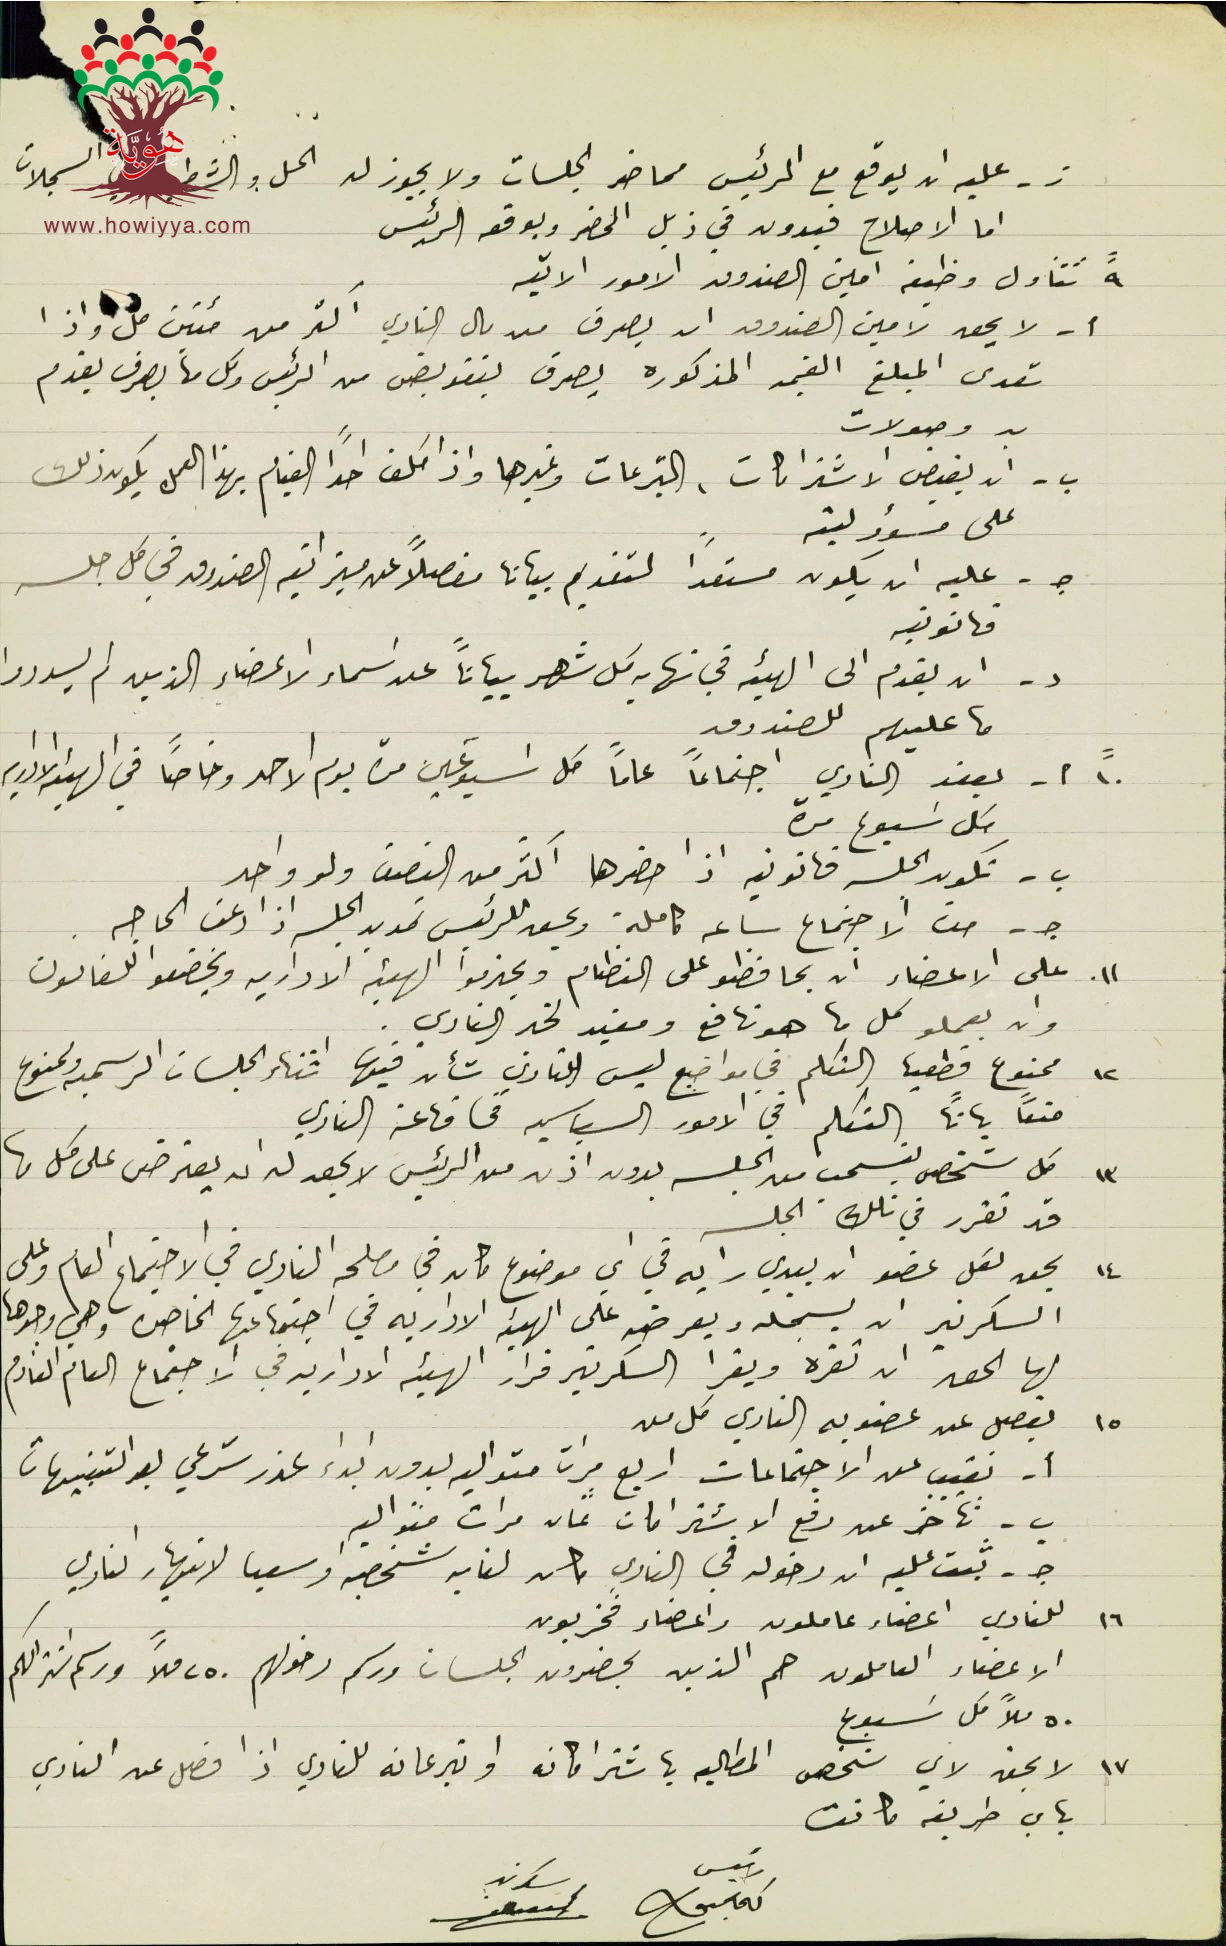 هُوِيَّة
www.howiyya.com
ز - عليه ان يوقع مع الرئيس محاضر الجلسات ولا يجوز له الحك والشطب السجلات
اما الاصلاح فيدون في ذيل المحضر ويوقعه الرئيس
٩ تتناول وظيفة امين الصندوق الامور الاتيه
أ - لا يحق لامين الصندوق ان يصرف من مال النادي اكثر من مئتين مل واذا
تعدى المبلغ القيمه المذكوره يصرف بتفويض من الرئيس وكل ما يصرف يقدم
به وصولات
ب - ان يقبض الاشتراكات ، التبرعات وغيرها واذا كلف احدًا القيام بهذا العمل يكون ذلك
على مسؤوليته
ج - عليه ان يكون مستعدًا لتقديم بيانا مفصلاً عن ميزانية الصندوق في كل جلسه
قانونيه
د - ان يقدم الى الهيئه في نهاية كل شهر بياناً عن اسماء الاعضاء الذين لم يسددوا
ما عليهم للصندوق
١٠ أ - يعقد النادي اجتماعاً عاماً كل اسبوعين مرة يوم الاحد وخاصاً في الهيئه الاداريه
كل اسبوع مرة
ب - تكون الجلسه قانونيه اذا حضرها اكثر من النصف ولو واحد
ج - مدة الاجتماع ساعه كاملة ويحق للرئيس تمديد الجلسه اذا دعت الحاجه .
١١. على الاعضاء ان يحافظو على النظام ويحترموا الهيئه الاداريه ويخضعوا للقانون
وان يعملو كل ما هو نافع ومفيد لخير النادي .
١٢ ممنوع قطعيا التكلم في مواضيع ليس للنادي شأن فيها اثناء الجلسات الرسميه وممنوع
منعاً باتاً التكلم في الامور السياسيه في قاعة النادي
١٣ كل شخص ينسحب من الجلسه بدون اذن من الرئيس لا يحق له ان يعترض على كل ما
قد تقرر في تلك الجلسه
١٤ يحق لكل عضو ان يبدي رايه في اي موضوع كان في مصلحة النادي في الاجتماع العام وعلى
السكرتير ان يسجله ويعرضه على الهيئه الاداريه في اجتماعها الخاص وهي وحدها
لها الحق ان تقره ويقرا السكرتير قرار الهيئه الاداريه في الاجتماع العام القادم
١٥ يفصل عن عضوية النادي كل من
أ - تغيب عن الاجتماعات اربع مرات متواليه بدون ابداء عذر شرعي بعد التنبيهات
ب - تأخر عن دفع الاشتراكات ثمان مرات متواليه
ج - ثبت عليه ان دخوله في النادي كان لغايه شخصيه او سعيا لانهيار النادي
١٦ للنادي اعضاء عاملون واعضاء فخريون
الاعضاء العاملون هم الذين يحضرون الجلسات ورسم دخولهم ٢٥٠ ملاً ورسم اشتراكهم
٥٠ ملاً كل اسبوع
١٧ لا يحق لاي شخص المطالبه باشتراكاته او تبرعاته للنادي اذا فصل عن النادي
باي طريقه كانت
رئيس سكرتير